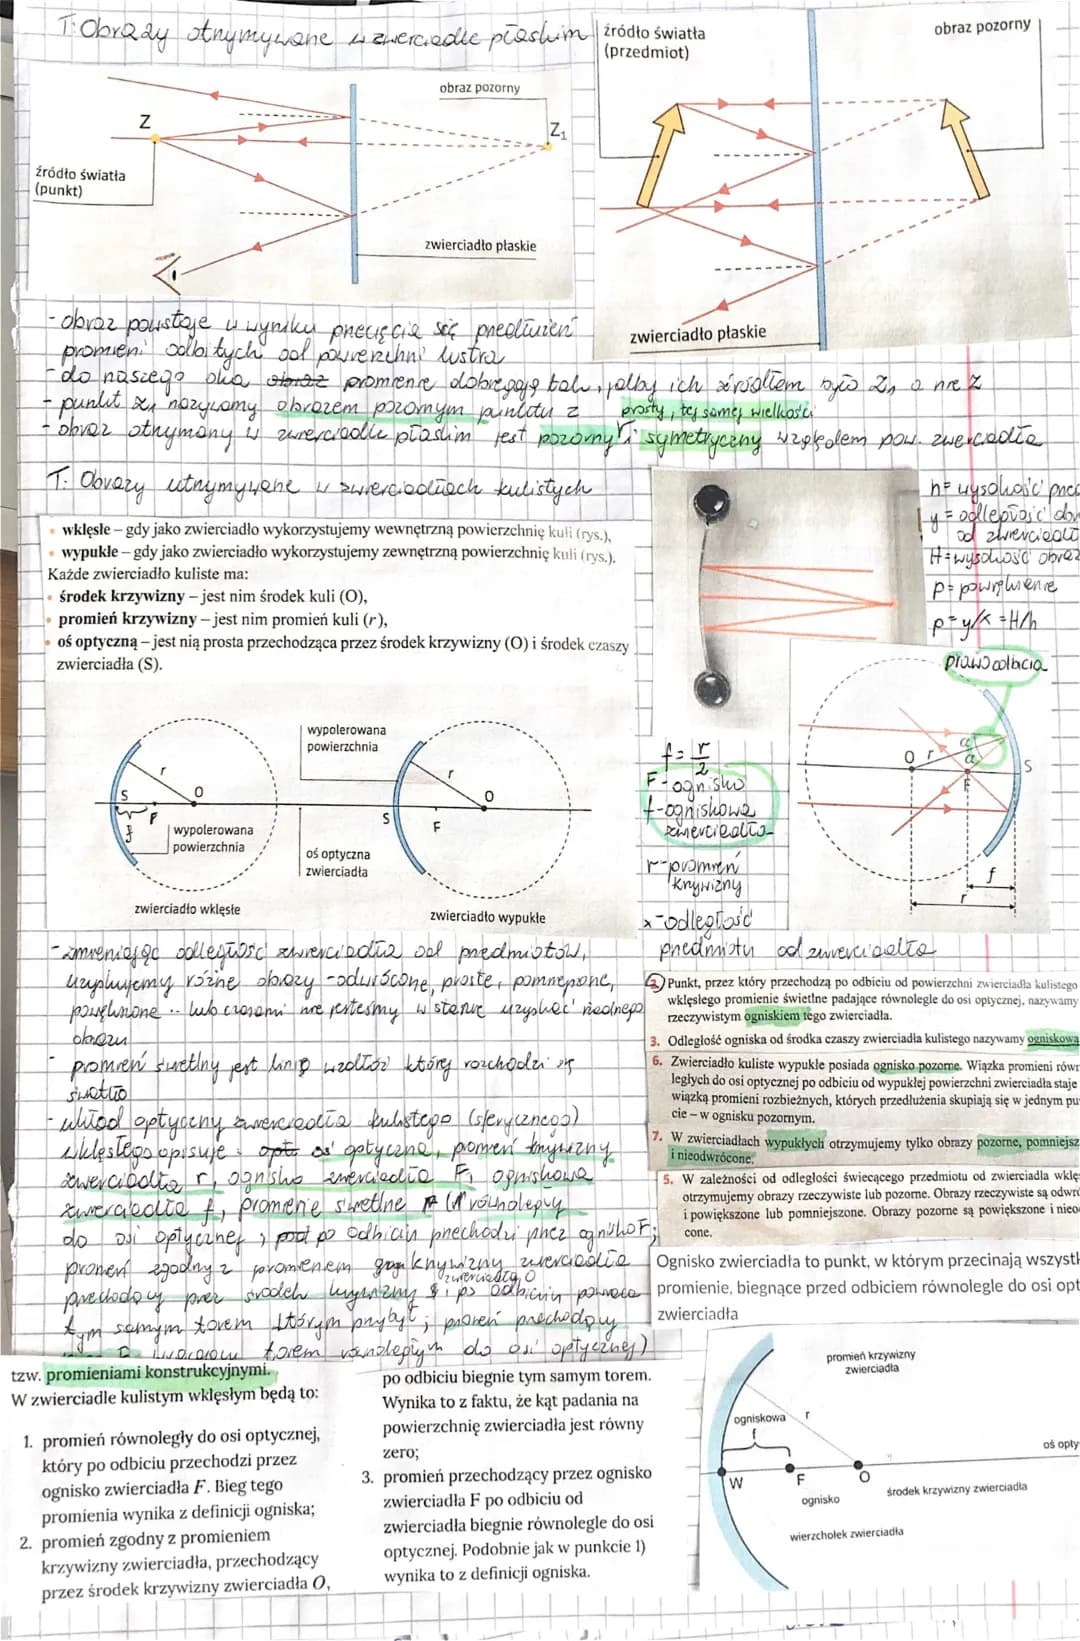 T: Obrazy otrzymywane w zwierciadle płaskim
źródło światła
(przedmiot)
obraz pozorny
obraz pozorny
Z
Z₁
źródło światła
(punkt)
zwierciadło płaskie
zwierciadło płaskie
- obraz powstaje w wyniku przecięcia się przedłużeń
promieni odbitych od powierzchni lustra
- do naszego oka obraz promienie dobiegają tak, jakby ich źródłem było Z₁ a nie Z
- punkt Z₁ nazywamy obrazem pozornym punktu Z
prosty, tej samej wielkości
- obraz otrzymany w zwierciadle płaskim jest pozorny i symetryczny względem pow. zwierciadła
T: Obrazy otrzymywane w zwierciadłach kulistych
• wklęsłe – gdy jako zwierciadło wykorzystujemy wewnętrzną powierzchnię kuli (rys.),
• wypukłe – gdy jako zwierciadło wykorzystujemy zewnętrzną powierzchnię kuli (rys.).
Każde zwierciadło kuliste ma:
• środek krzywizny – jest nim środek kuli (O),
• promień krzywizny – jest nim promień kuli (r),
• oś optyczną – jest nią prosta przechodząca przez środek krzywizny (O) i środek czaszy
zwierciadła (S).
h = wysokość
y = odległość
od
H = wysokość
p = powiększenie
p = y/x = H/h
prawo odbicia
S
r
O
F
f
wypolerowana
powierzchnia
zwierciadło wklęsłe
wypolerowana
powierzchnia
oś optyczna
zwierciadła
S
F
r
O
zwierciadło wypukłe
f = r/2
F - ognisko
f - ogniskowa
zwierciadła
r - promień
krzywizny
x - odległość
przedmiotu od zwierciadła
O
r
α
α
F
S
f
r
- zmieniając odległość zwierciadła od przedmiotów,
uzyskujemy różne obrazy - odwrócone, proste, pomniejszone,
powiększone .. lub czasami nie jesteśmy w stanie uzyskać żadnego
obrazu
- promień świetlny jest linią wzdłuż której rozchodzi się
światło
- układ optyczny zwierciadła kulistego (sferycznego)
wklęsłego opisuje: opt oś optyczna, promień krzywizny
zwierciadła r, ognisko zwierciadła F, ogniskowa
zwierciadła f, promienie świetlne (równoległy
do osi optycznej, po odbiciu przechodzi przez ognisko F;
promień zgodny z promieniem krzywizny zwierciadła
przechodzący przez środek krzywizny zwierciadła O i po odbiciu powraca
tym samym torem którym przybył; promień przechodzący
torem równoległym do osi optycznej)
2. Punkt, przez który przechodzą po odbiciu od powierzchni zwierciadła kulistego
wklęsłego promienie świetlne padające równolegle do osi optycznej, nazywamy
rzeczywistym ogniskiem tego zwierciadła.
3. Odległość ogniska od środka czaszy zwierciadła kulistego nazywamy ogniskową
6. Zwierciadło kuliste wypukłe posiada ognisko pozorne. Wiązka promieni równ
ległych do osi optycznej po odbiciu od wypukłej powierzchni zwierciadła staje
wiązką promieni rozbieżnych, których przedłużenia skupiają się w jednym pu
cie – w ognisku pozornym.
7. W zwierciadłach wypukłych otrzymujemy tylko obrazy pozorne, pomniejsz
i nieodwrócone.
5. W zależności od odległości świecącego przedmiotu od zwierciadła wklę
otrzymujemy obrazy rzeczywiste lub pozorne. Obrazy rzeczywiste są odwró
i powiększone lub pomniejszone. Obrazy pozorne są powiększone i nieo
cone.
Ognisko zwierciadła to punkt, w którym przecinają wszystk
promienie, biegnące przed odbiciem równolegle do osi opt
zwierciadła
tzw. promieniami konstrukcyjnymi.
W zwierciadle kulistym wklęsłym będą to:
1. promień równoległy do osi optycznej,
który po odbiciu przechodzi przez
ognisko zwierciadła F. Bieg tego
promienia wynika z definicji ogniska;
2. promień zgodny z promieniem
krzywizny zwierciadła, przechodzący
przez środek krzywizny zwierciadła O,
po odbiciu biegnie tym samym torem.
Wynika to z faktu, że kąt padania na
powierzchnię zwierciadła jest równy
zero;
3. promień przechodzący przez ognisko
zwierciadła F po odbiciu od
zwierciadła biegnie równolegle do osi
optycznej. Podobnie jak w punkcie 1)
wynika to z definicji ogniska.
promień krzywizny
zwierciadła
ogniskowa
f
r
oś opty
W
F
O
ognisko
środek krzywizny zwierciadła
wierzchołek zwierciadła